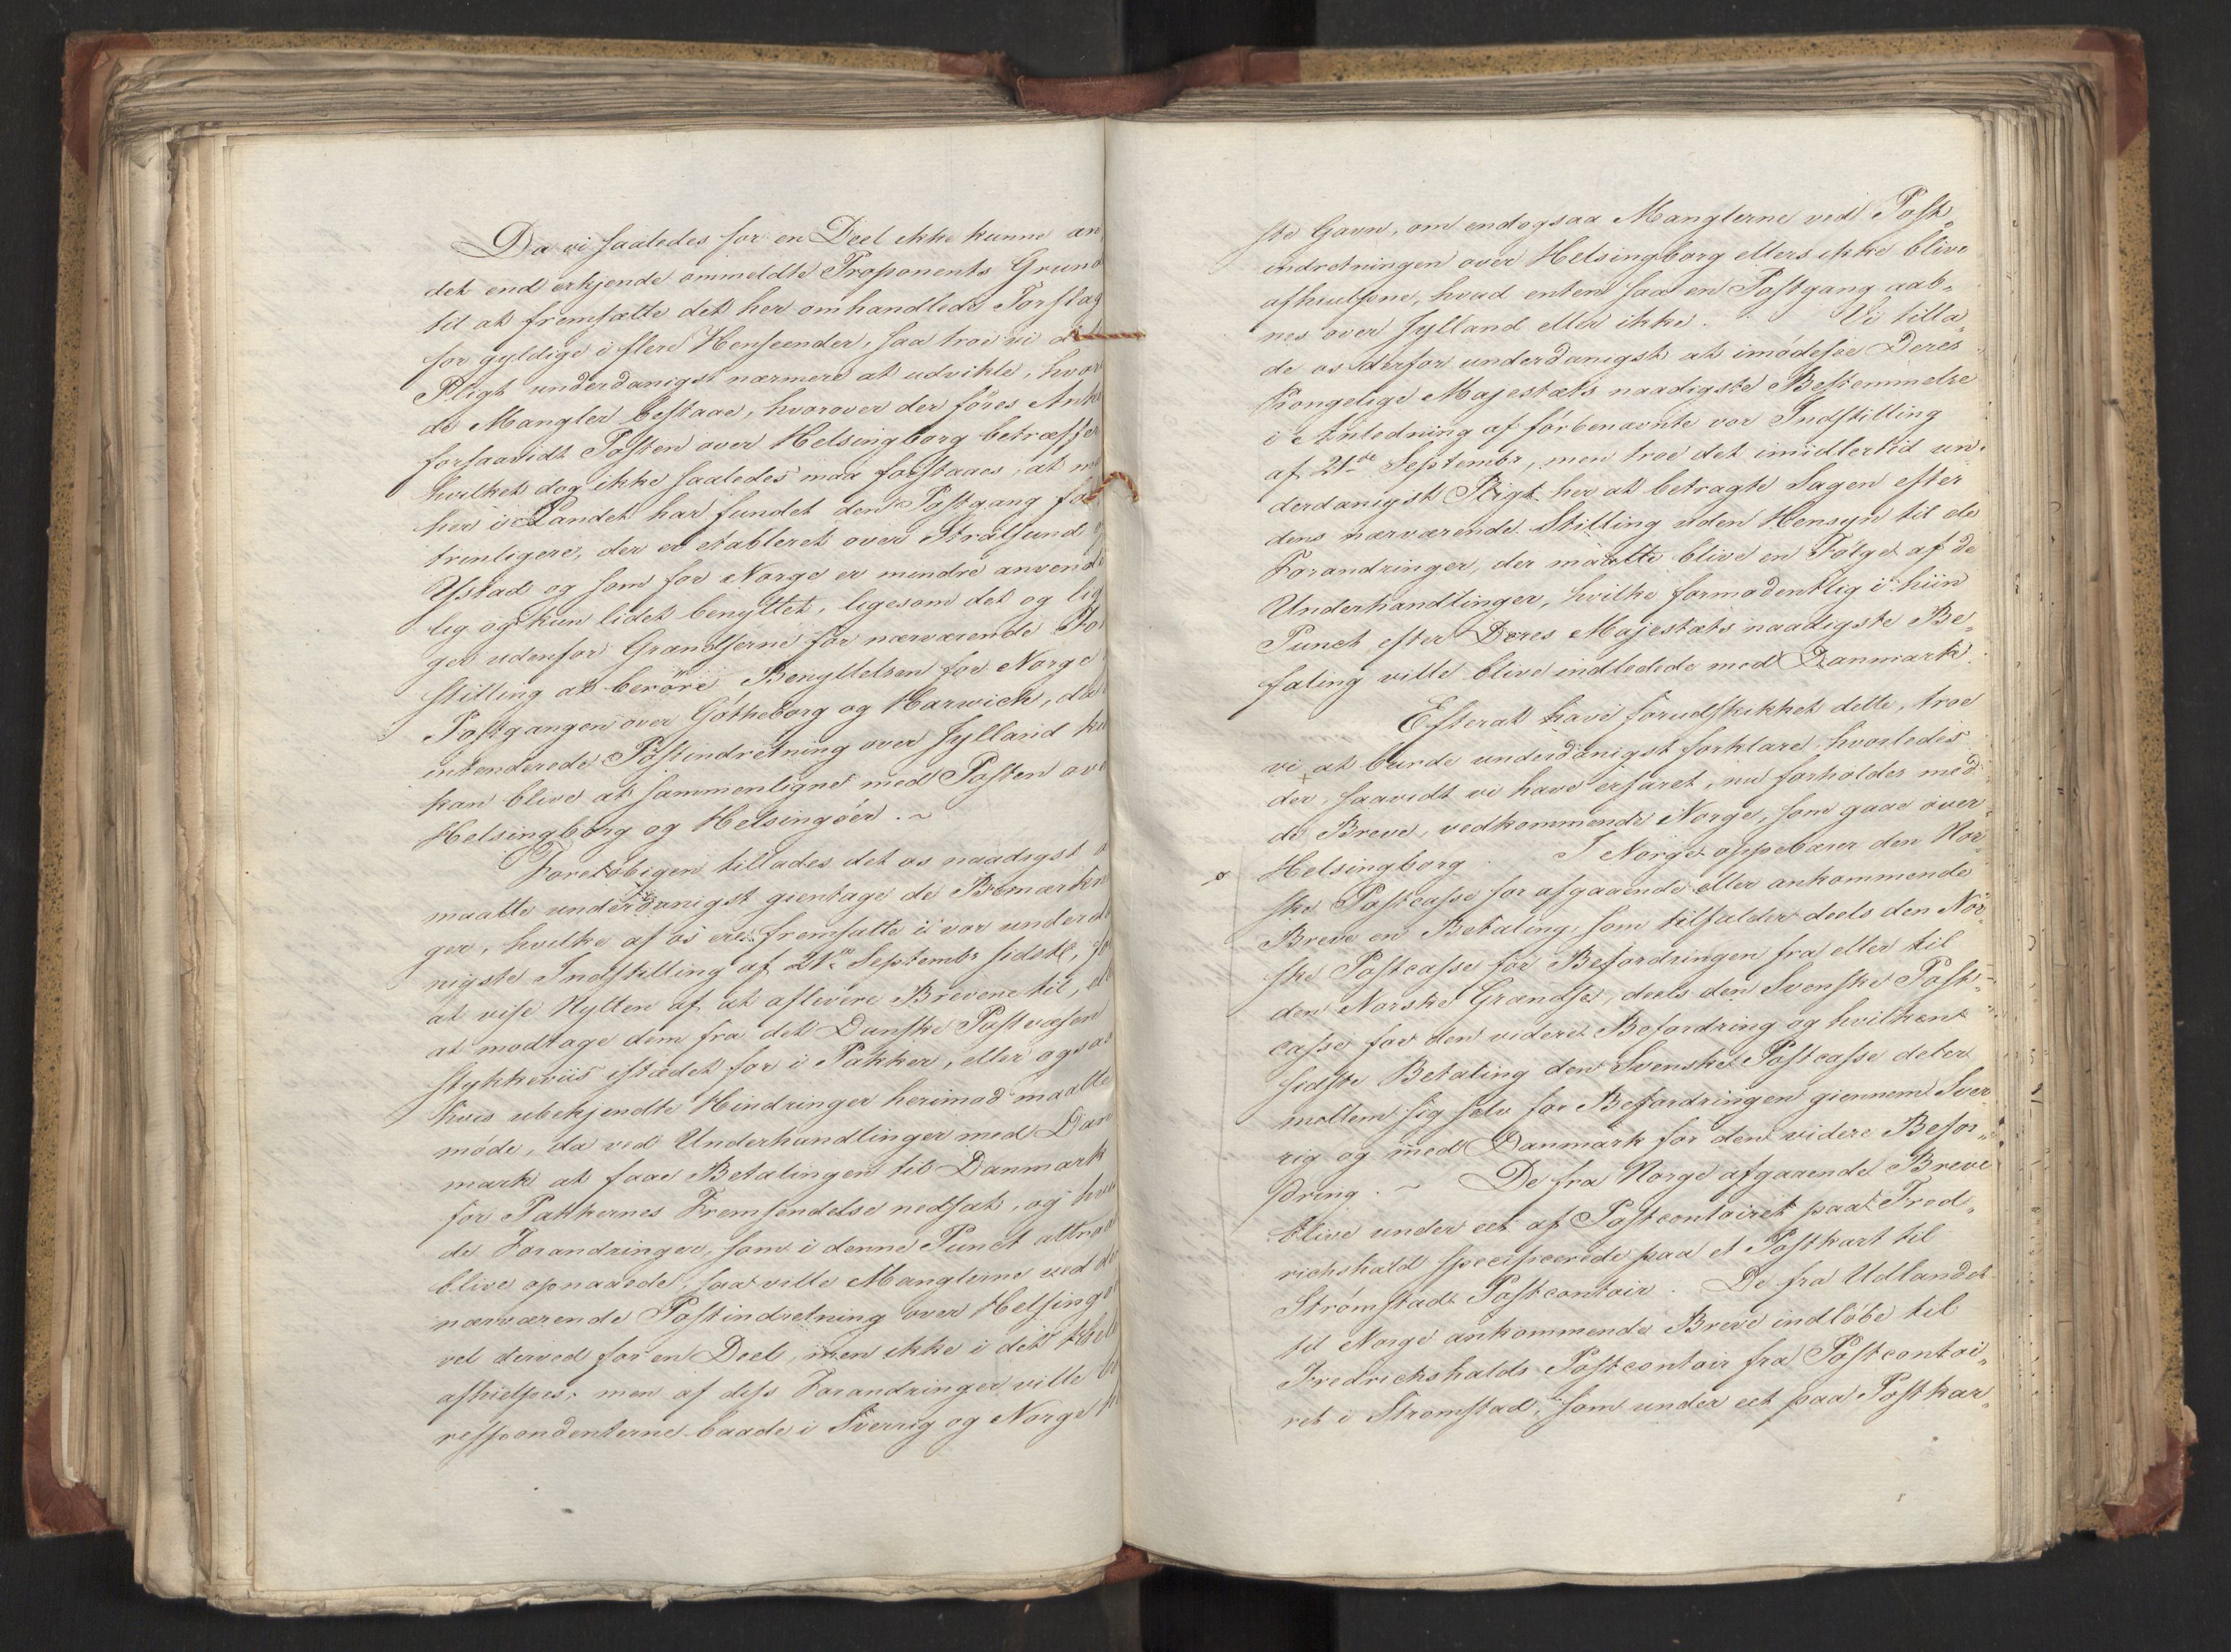 Da vi saaledes for en Deel ikke kunne an
det end erkjende ommeldte Proponents Grund
til at fremsætte det her omhandlede Forslag
for gyldige i flere Henseender, saa troe vi det
Pligt underdanigst nærmere at udvikle, hvor
de Mangler bestaae, hvorover der föres Anke
forsaavidt Posten over Helsingborg betræffer
hvilket dog ikke saaledes maa forstaaes, at
her i Landet har fundet den Postgang
trinligere, der er etableret over Stralsund
Ystad og som for Norge er mindre anvende
lig og kun lidet benyttet, ligesom det og lig
ger udenfor Grændserne for nærværende
stilling at beröre Benyttelsen for Norge
Postgangen over Götheborg og Harwich, da
intenderede Postindretning over Jylland
kan blive at sammenligne med Posten ove
Helsingborg og Helsingöer. ~
Foreløbigen tillades det os naadigst
maatte underdanigst gientage de Bemærkn
ger, hvilke af os ere fremsatte i vor underda
nigste Indstilling af 21de Septembr sidstl,
at vise Nytten af at aflevere Brevene til,
at modtage dem fra det Danske Postvæsen
stykkeviis istædet for i Pakker, eller ogsaa
hvis ubekjendte Hindringer herimod maatte
möde, da ved Underhandlinger med Dan
mark at faae Betalingen til Danmark
for Pakkernes Fremsendelse nedsat, og
de Forandringer, som i denne Punct
blive opnaaede, saa ville Manglerne ved
nærværende Postindretning over Helsing
vel derved for en Deel, men ikke i det Hele
afhielpes; men af diss Forandringer ville
respondenterne baade i Sverrig og Norge
ste Gavn, om endogsaa Manglerne ved Post„
indretningen over Helsingborg ellers ikke blive
afhiulpene, hvad enten saa en Postgang aab„
nes over Jylland eller ikke. Vi tilla„
de os derfor underdanigst at imödesee Deres
Kongelige Majestæts naadigste Bestemmelse
i Anledning af förbenævnte vor Indstilling
af 21de Septembr, men troe det imidlertid un„
derdanigst Pligt her at betragte Sagen efter
dens nærværende Stilling uden Hensyn til de
Forandringer, der maatte blive en Fölge af de
Underhandlinger, hvilke formodentlig i hiin
Punct efter Deres Majestæts naadigste Be„
faling ville blive indledede med Danmark.
Efter at have forudskikket dette, troe
vi at burde underdanigst forklare, hvorledes
der, saavidt vi have erfaret, nu forholdes med
de Breve, vedkommende Norge, som gaae over
Helsingborg. I Norge oppebærer den Nor„
ske Postcasse for afgaaende eller ankommende
Breve en Betaling, som tilfalder deels den Nor„
ske Postcasse for Befordringen fra eller til
den Norske Grændse, deels den Svenske Post„
casse for den videre Befordring og hvilken
sidste Betaling den Svenske Postcasse deler
mellem sig selv for Befordringen giennem Sver„
rig og med Danmark for den videre Befor„
dring. ~ De fra Norge afgaaende Breve
blive under eet af Postcontoiret paa Fred„
richshald specificerede paa et Postkart til
Strömstads Postcontoir. De fra Udlandet
til Norge ankommende Breve indlöbe til
Fredrichshalds Postcontoir fra Postcontoi„
ret i Strömstad, som under eet paa Postkar„